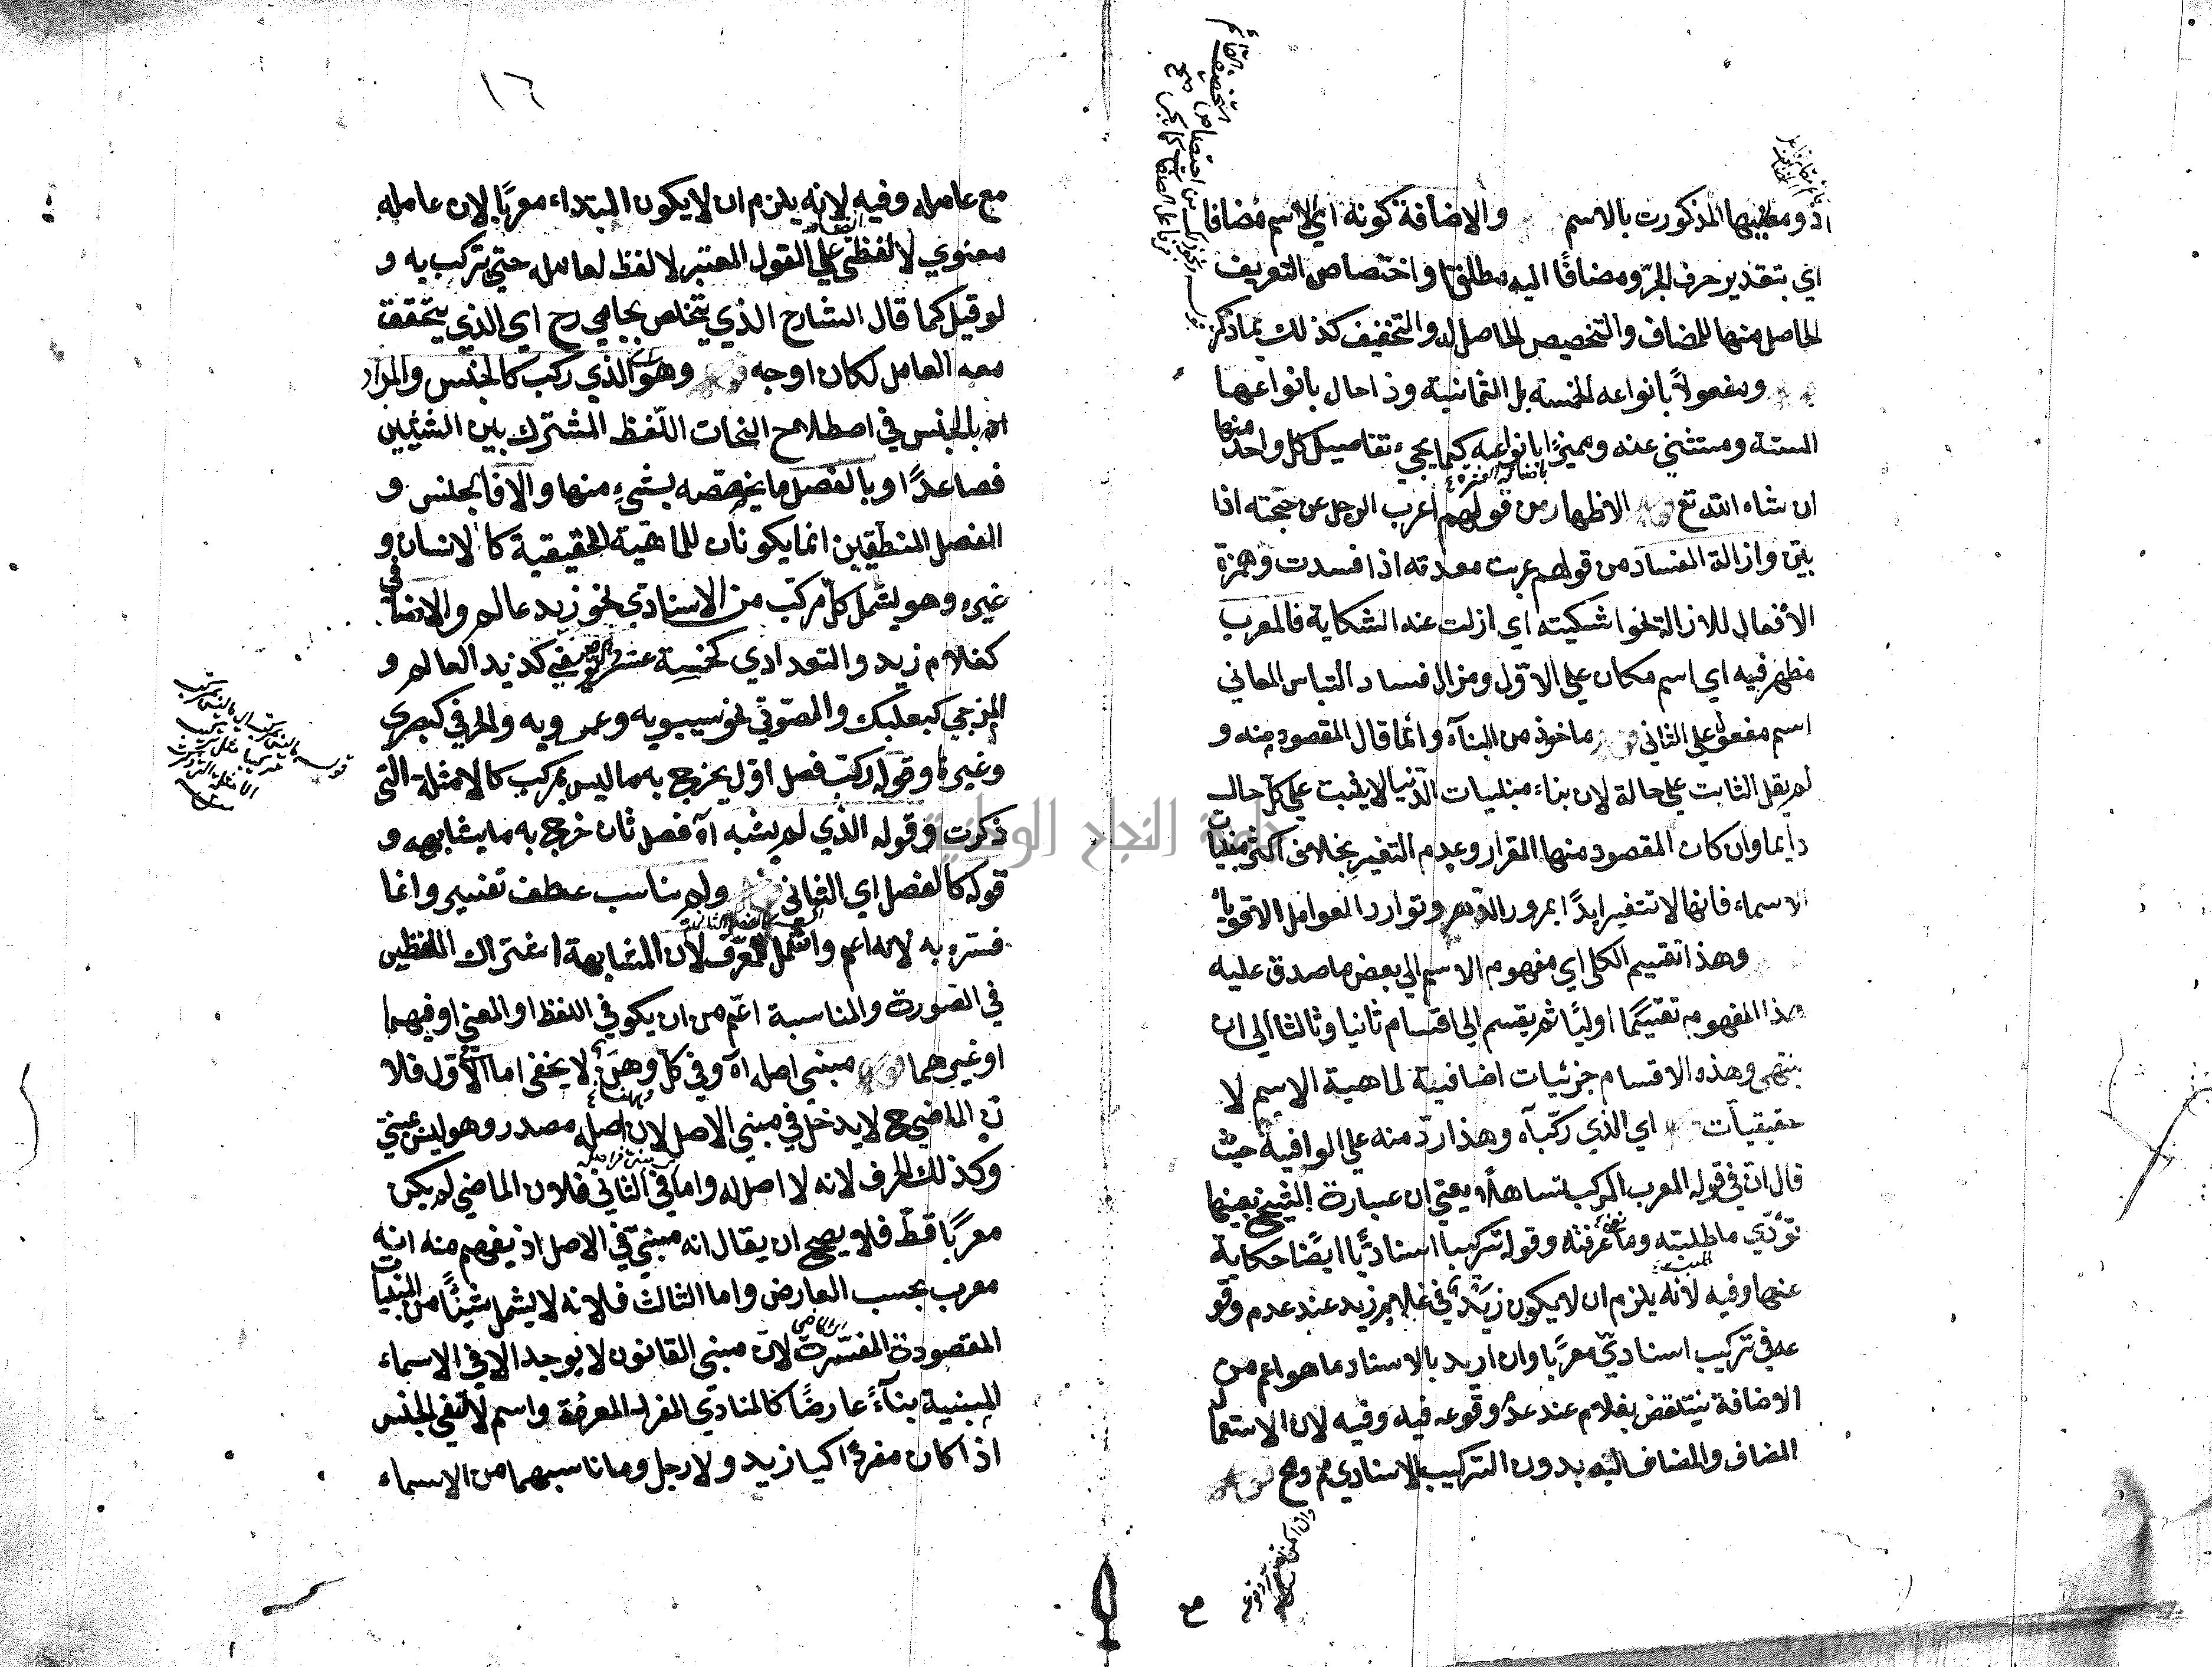 اذ ومعنيها المذكورت بالاسم والاضافة كونه اي الاسم مضافا
اي بتقدير حرف الجر ومضافًا اليه مطلقا واختصاص التعريف
الحاصل منها للمضاف والتخصيص الحاصل له والتخفيف كذلك بما ذكر
ومفعولاً بانواعه الخمسة بل الثمانية وذا حال بانواعها
الستة ومستثني عنه ومميزًا بانواعه كما يجيء تفاصيل كل واحد منها
ان شاء الله تع الاظهار من قولهم اعرب الرجل عن حجته اذا
بيّن وازالة الفساد من قولهم عربت معدته اذا فسدت وهمزة
الأفعال للازالة نحو اشكيته اي ازلت عنه الشكاية فالمعرب
مظهر فيه اي اسم مكان علي الاوّل ومزال فساد التباس المعاني
اسم مفعول علي الثاني ماخوذ من البنآء وانما قال المقصود منه و
لم يقل الثابت علي حالة لان بناء مبنيات الدّنيا لا يثبت علي كل حال
دايما وان كان المقصود منها القرار وعدم التغير بخلاف اكثر مبنيات
الاسماء فانها لا تتغير ابدًا بمرور الدهر وتوارد العوامل الاقوياء
وهذا تقسيم الكلي اي مفهوم الاسم الي بعض ما صدق عليه
هذا المفهوم تقسيمًا اوليًا ثم يقسم الي اقسام ثانيا وثالثا الي ان
ينتهي وهذه الاقسام جزئيات اضافية لماهية الاسم لا
حقيقيات اي الذي ركّب آه وهذا ردّ منه علي الوافية حيث
قال ان في قوله المعرب المركب تساهلا ويعني ان عبارة الشيخ بعينها
تؤدّي ما طلبته وما عرفته وقوله تركيبا اسناديًّا ايضًا حكاية
عنها وفيه لانه يلزم ان لا يكون زيد في غلام زيد عند عدم وقو
عه في تركيب اسنادي معربًا وان اريد بالاسناد ما هو اعم من
الاضافة ينتقض بغلام عند عدم وقوعه فيه وفيه لان الاستعمال
المضاف والمضاف اليه بدون التركيب الاسنادي مم وح
١٦
مع عامله وفيه لانه يلزم ان لا يكون المبتداء معربًا لان عامله
معنوي لا لفظي علي القول المعتبر لا لفظ لعامله حتي تركب به و
لو قيل كما قال الشارح الذي يتخلص بجامي رح اي الذي يتحقق
معه العامل لكان اوجه وهو الذي ركب كالجنس والمراد
بالجنس في اصطلاح النحات اللّفظ المشترك بين الشيئين
فصاعدًا وبالفصل ما يخصّصه بشيء منها والا فالجنس و
الفصل المنطقيين انما يكونان للماهية الحقيقية كالانسان و
غيره وهو يشمل كلّ مركّب من الاسنادي نحو زيد عالم والاضافي
كغلام زيد والتعدادي كخمسة عشر والتوصيفي كزيد العالم و
المزجي كبعلبك والصوتي نحو سيبويه وعمرويه والحرفي كبصري
وغيره وقوله ركب فصل اوّل يخرج به ما ليس بمركب كالامثلة التي
ذكرت وقوله الذي لم يشبه آه فصل ثان خرج به ما يشابهه و
قوله كالفصل اي الثاني ولم يناسب عطف تفسير وانما
فسّره به لانه اعم واشمل للمعرّف لان المشابهة اشتراك اللفظين
في الصورة والمناسبة اعّم من ان يكون في اللفظ او المعني او فيهما
او غيرهما مبني اصله آه وفي كل وهن لا يخفي اما الأوّل فلا
ن الماضي ح لا يدخل في مبني الاصل لان اصله مصدر وهو ليس بمبني
وكذلك الحرف لانه لا اصل له واما في الثاني فلان الماضي لم يكن
معربًا قطّ فلا يصح ان يقال انه مبنيّ في الاصل اذ يفهم منه انه
معرب بحسب العارض واما الثالث فلانه لا يشمل شيئًا من المبنيات
المقصودة المفسّرة لان مبني القانون لا يوجد الا في الاسماء
المبنية بنآءً عارضًا كالمنادي المفرد المعرفة واسم لا لنفي الجنس
اذا كان مفردًا كيا زيد ولا رجل وما ناسبهما من الاسماء
جامعة النجاح الوطنية